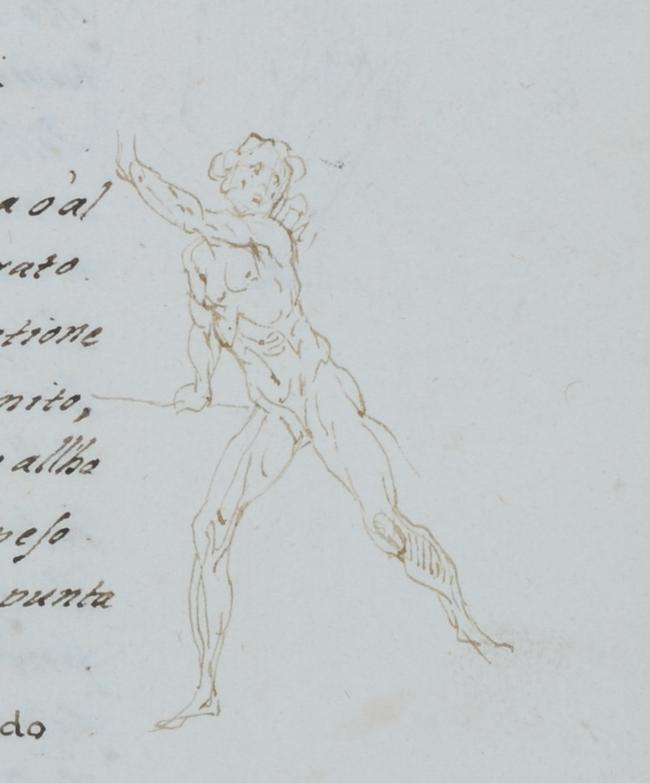 a o' al
rato
tione
nito,
allho
peſo
punta
do